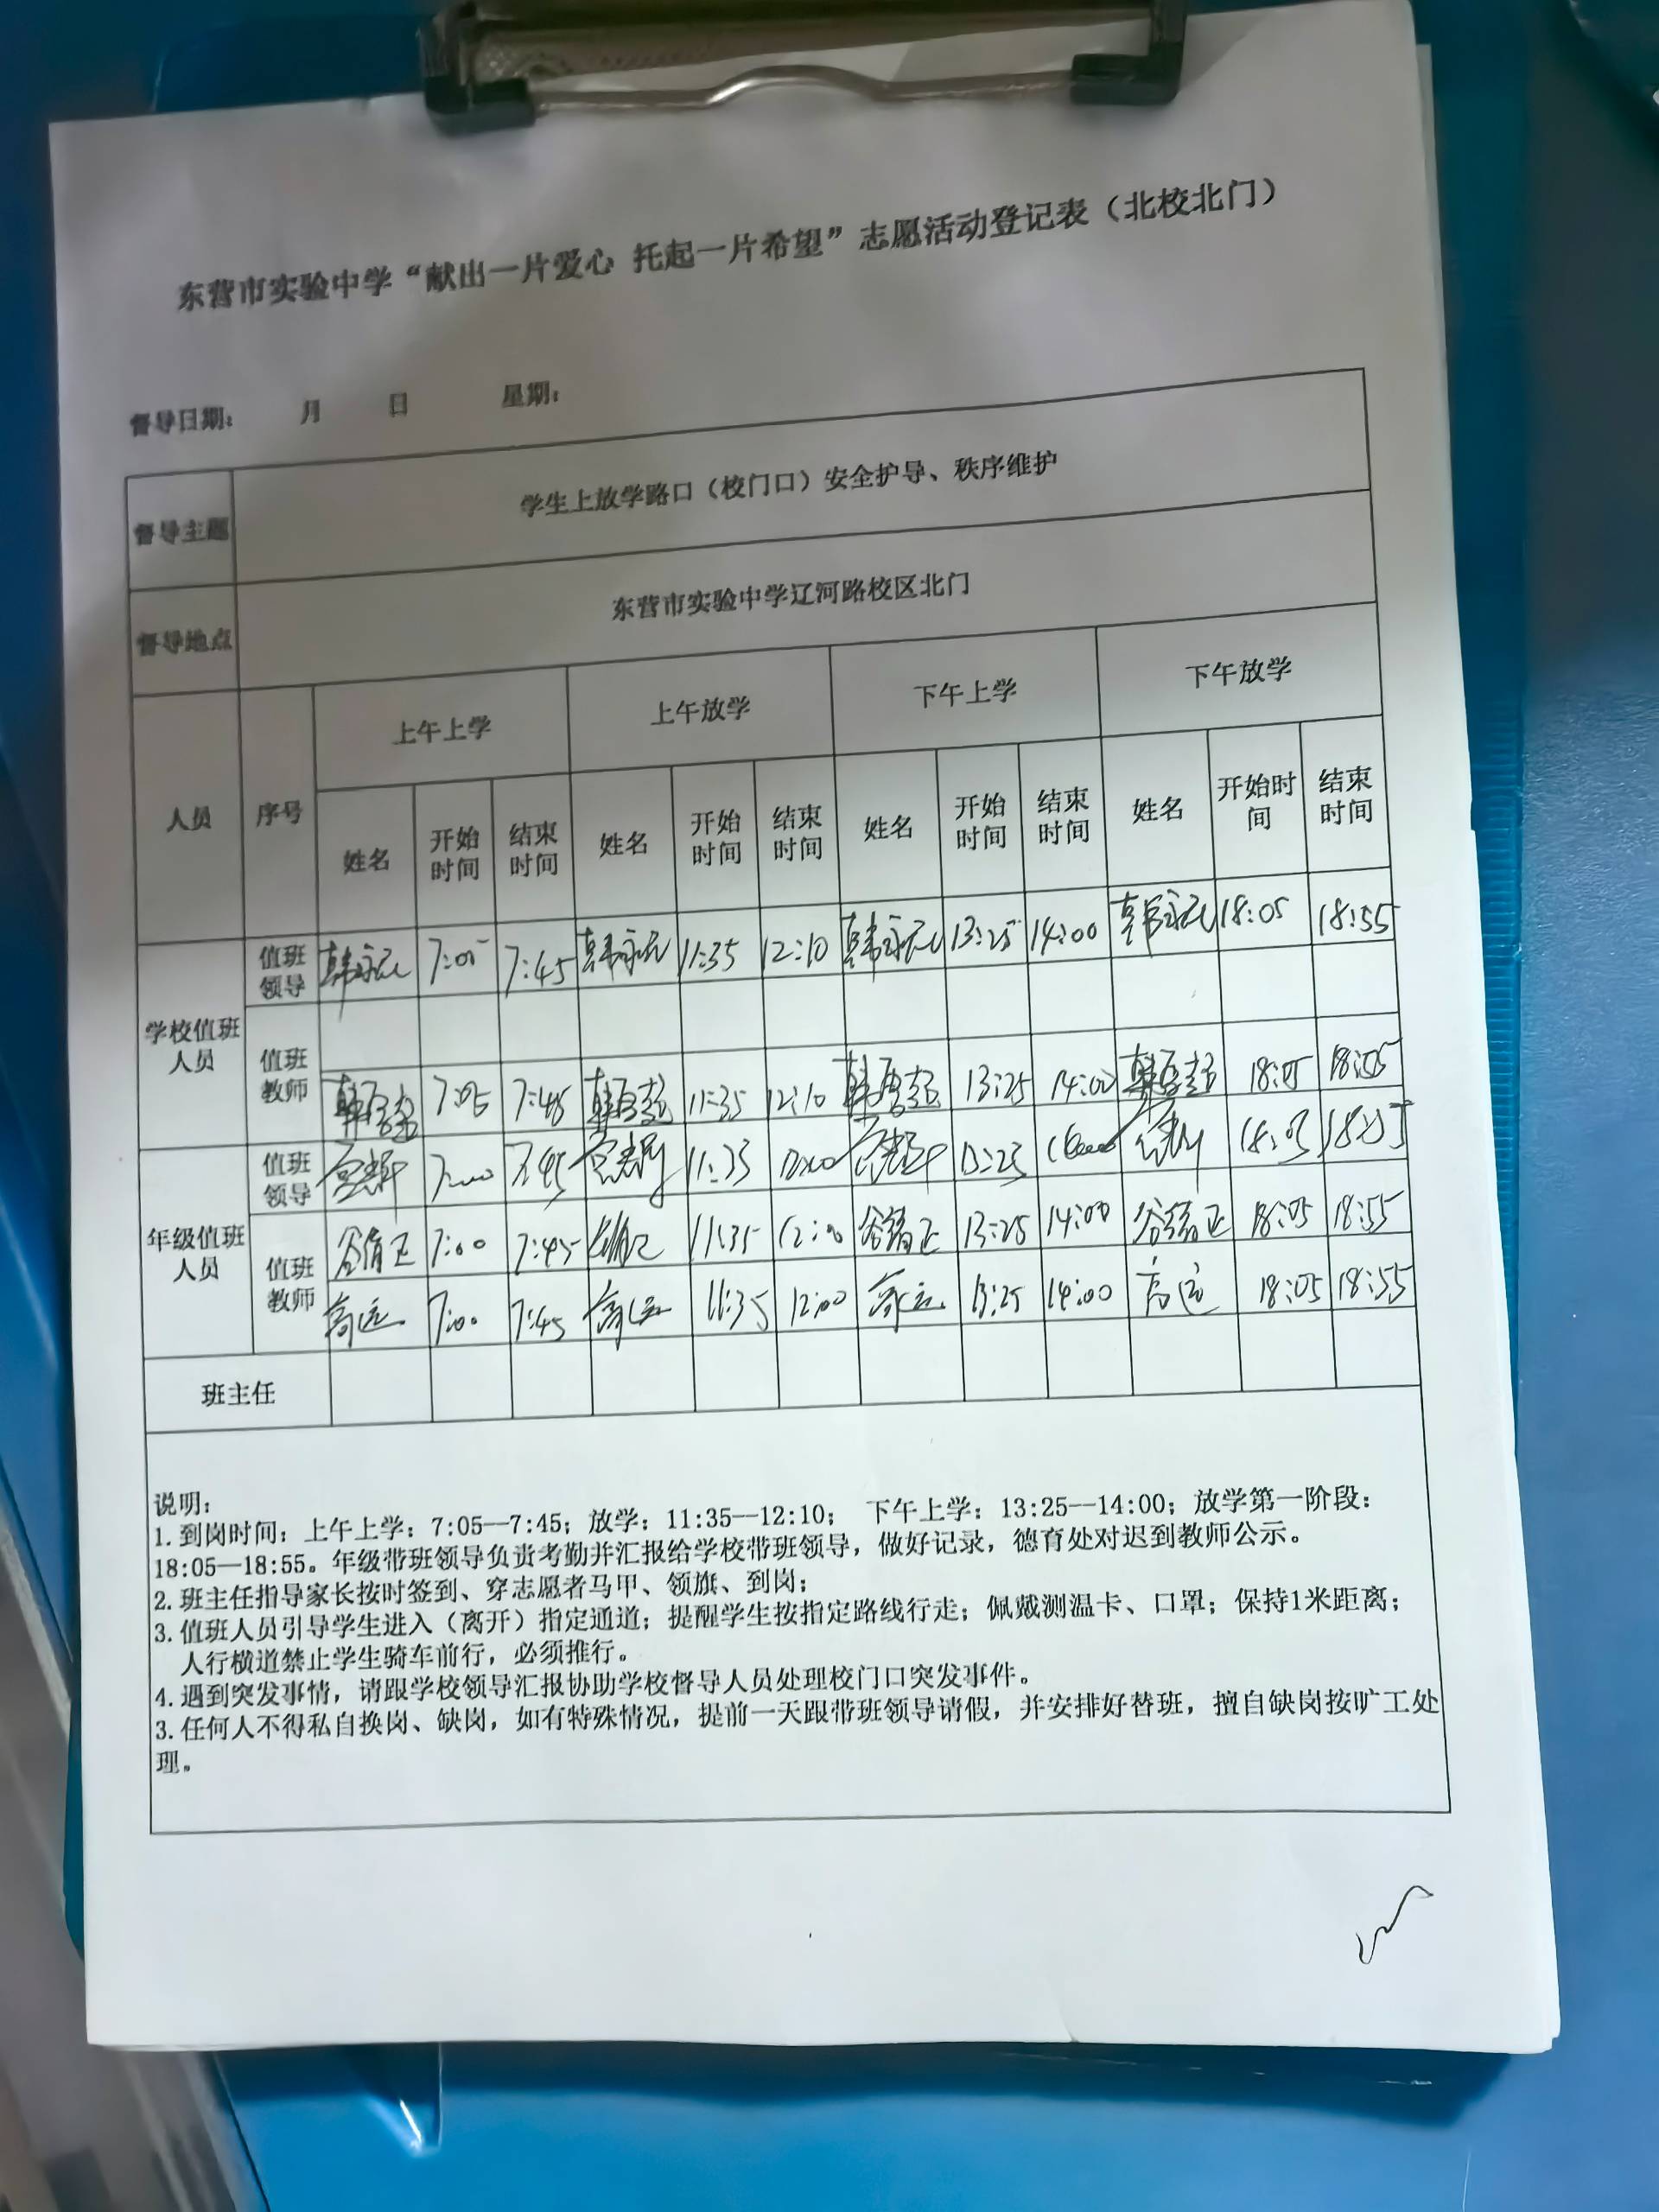 东营市实验中学“献出一片爱心 托起一片希望”志愿活动登记表（北校北门）
督导日期： 月 日 星期：
督导主题 学生上放学路口（校门口）安全护导、秩序维护
督导地点 东营市实验中学辽河路校区北门
人员 序号 上午上学 上午放学 下午上学 下午放学
姓名 开始时间 结束时间 姓名 开始时间 结束时间 姓名 开始时间 结束时间 姓名 开始时间 结束时间
学校值班人员 值班领导 7:05 7:45 11:35 12:10 13:25 14:00 18:05 18:55
值班教师 7:05 7:45 11:35 12:10 13:25 14:00 18:05 18:05
年级值班人员 值班领导 7:45 11:35 13:25
值班教师 7:00 7:45 11:35 12:00 13:25 14:00 18:05 18:55
高远 7:00 7:45 高远 11:35 12:00 高远 13:25 14:00 高远 18:05 18:55
班主任
说明：
1.到岗时间：上午上学：7:05—7:45；放学：11:35—12:10； 下午上学：13:25—14:00；放学第一阶段：
18:05—18:55。年级带班领导负责考勤并汇报给学校带班领导，做好记录，德育处对迟到教师公示。
2.班主任指导家长按时签到、穿志愿者马甲、领旗、到岗；
3.值班人员引导学生进入（离开）指定通道；提醒学生按指定路线行走；佩戴测温卡、口罩；保持1米距离；
人行横道禁止学生骑车前行，必须推行。
4.遇到突发事情，请跟学校领导汇报协助学校督导人员处理校门口突发事件。
3.任何人不得私自换岗、缺岗，如有特殊情况，提前一天跟带班领导请假，并安排好替班，擅自缺岗按旷工处
理。